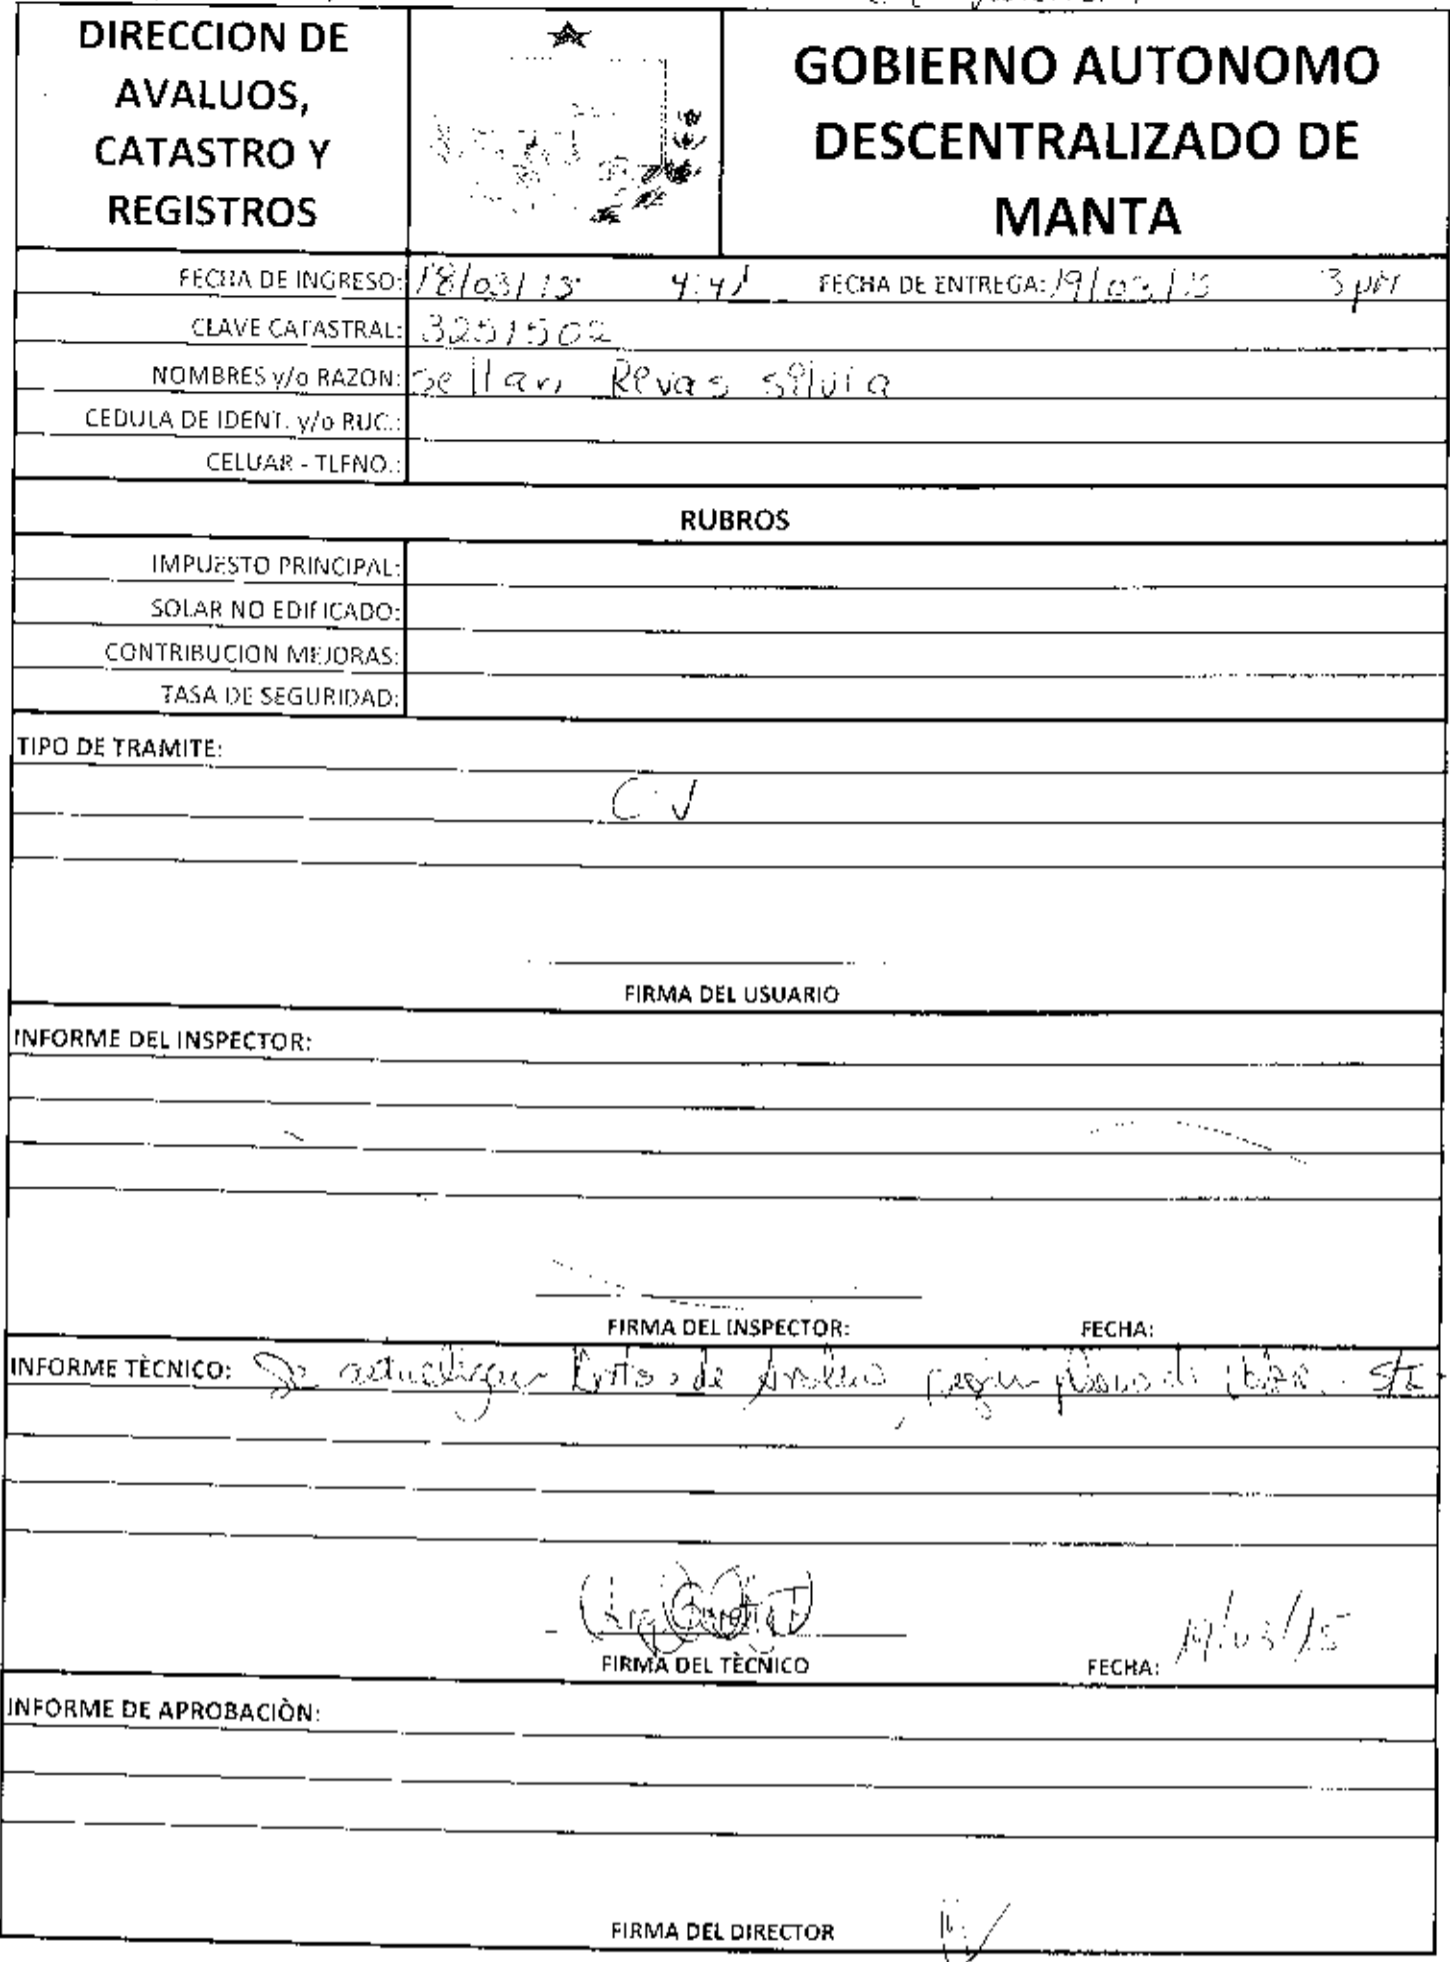 DIRECCION DE
AVALUOS,
CATASTRO Y
REGISTROS
GOBIERNO AUTONOMO
DESCENTRALIZADO DE
MANTA
FECHA DE INGRESO: 18/03/15 4:41 FECHA DE ENTREGA: 19/03/15 3 pm
CLAVE CATASTRAL: 3251502
NOMBRES y/o RAZON: Sellan Revas Silvia
CEDULA DE IDENT. y/o RUC.:
CELUAR - TLFNO.:
RUBROS
IMPUESTO PRINCIPAL:
SOLAR NO EDIFICADO:
CONTRIBUCION MEJORAS:
TASA DE SEGURIDAD:
TIPO DE TRAMITE:
C V
FIRMA DEL USUARIO
INFORME DEL INSPECTOR:
FIRMA DEL INSPECTOR: FECHA:
INFORME TÈCNICO: Se de
FIRMA DEL TÈCNICO FECHA: 19/03/15
INFORME DE APROBACIÒN:
FIRMA DEL DIRECTOR